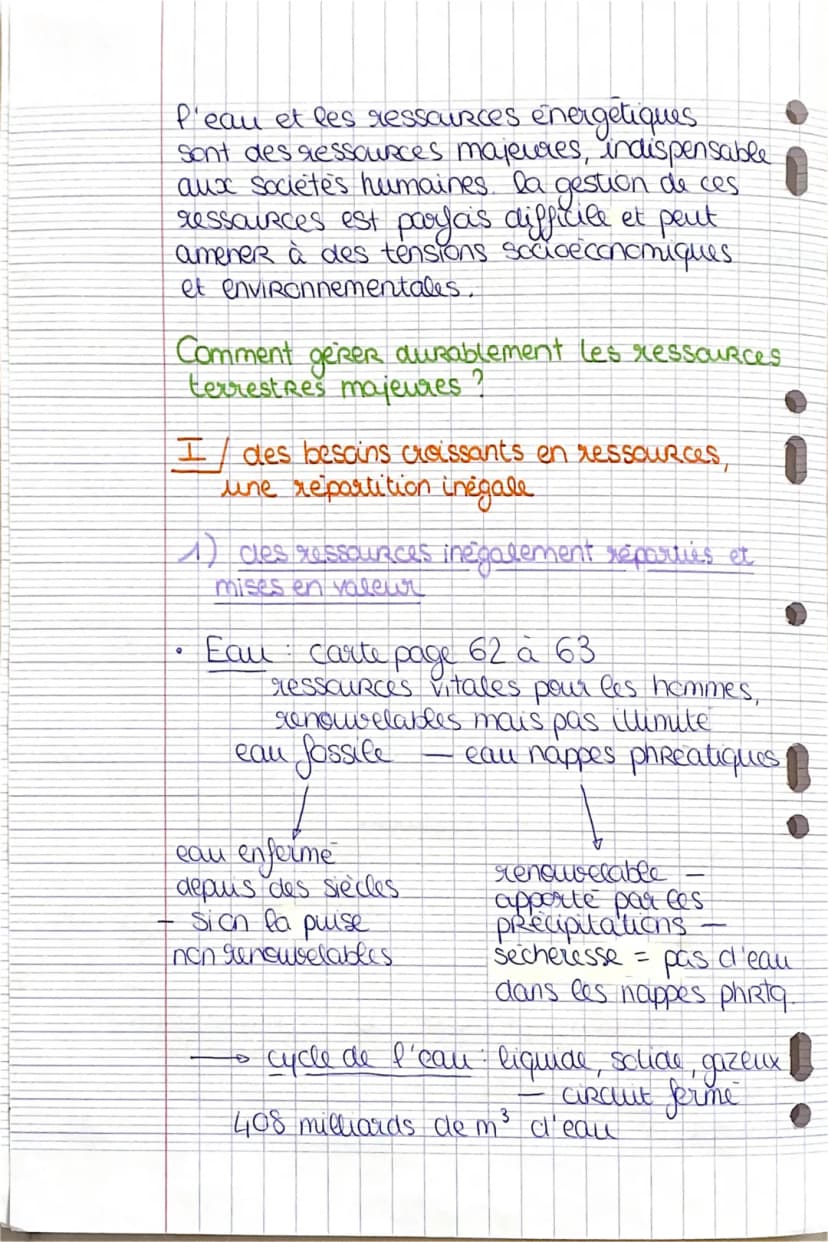 l'eau et les ressources énergétiques
sont des ressources majeures, indispensable
aux sociétés humaines. la gestion de ces
ressources est parfois difficile et peut
amener à des tensions socioéconomiques
et environnementales.
Comment gérer durablement les ressources
terrestres majeures ?
I / des besoins croissants en ressources,
une répartition inégale
1) des ressources inégalement réparties et
mises en valeur
• Eau : carte page 62 à 63
ressources vitales pour les hommes,
renouvelables mais pas illimité
eau fossile — eau nappes phréatiques
eau enfermé
depuis des siècles
- si on la puise
non renouvelables
renouvelable —
apporté par les
précipitations —
sécheresse = pas d'eau
dans les nappes phrtq.
→ cycle de l'eau : liquide, solide, gazeux
— circuit fermé
408 milliards de m³ d'eau